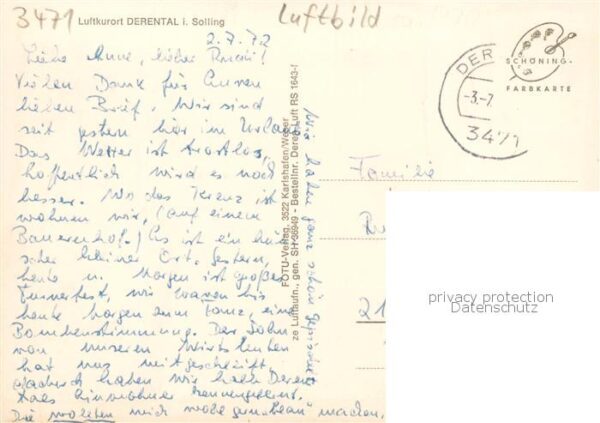 3471 Luftkurort DERENTAL i. Solling
Luftbild
2.7.72
Liebe Anne, lieber
Vielen Dank für Euren
lieben Brief. Wir sind
seit gestern hier im Urlaub
Das Wetter ist trostlos,
hoffentlich wird es noch
besser. Wo das Kreuz ist
wohnen wir, (auf einem
Bauernhof.) Es ist ein hüb-
scher kleiner Ort. Gestern,
heute u. Morgen ist großes
Turnerfest, wir waren bis
heute Morgen zum Tanz, eine
Bombenstimmung. Der Sohn
von unseren Wirtsleuten
hat uns mitgeschleift,
dadurch haben wir halb Derental
als Einwohner kennengelernt.
Die wollten mich wohl gern "blau" machen.
Wir haben ganz schön
FOTU-Verlag, 3522 Karlshafen/Weser
ze Luftaufn., gen. SH 36949 - Bestellnr. Deren Luft RS 1643-I
DER
-3.-7.
3471
SCHÖNING-
FARBKARTE
Familie
21
privacy protection
Datenschutz